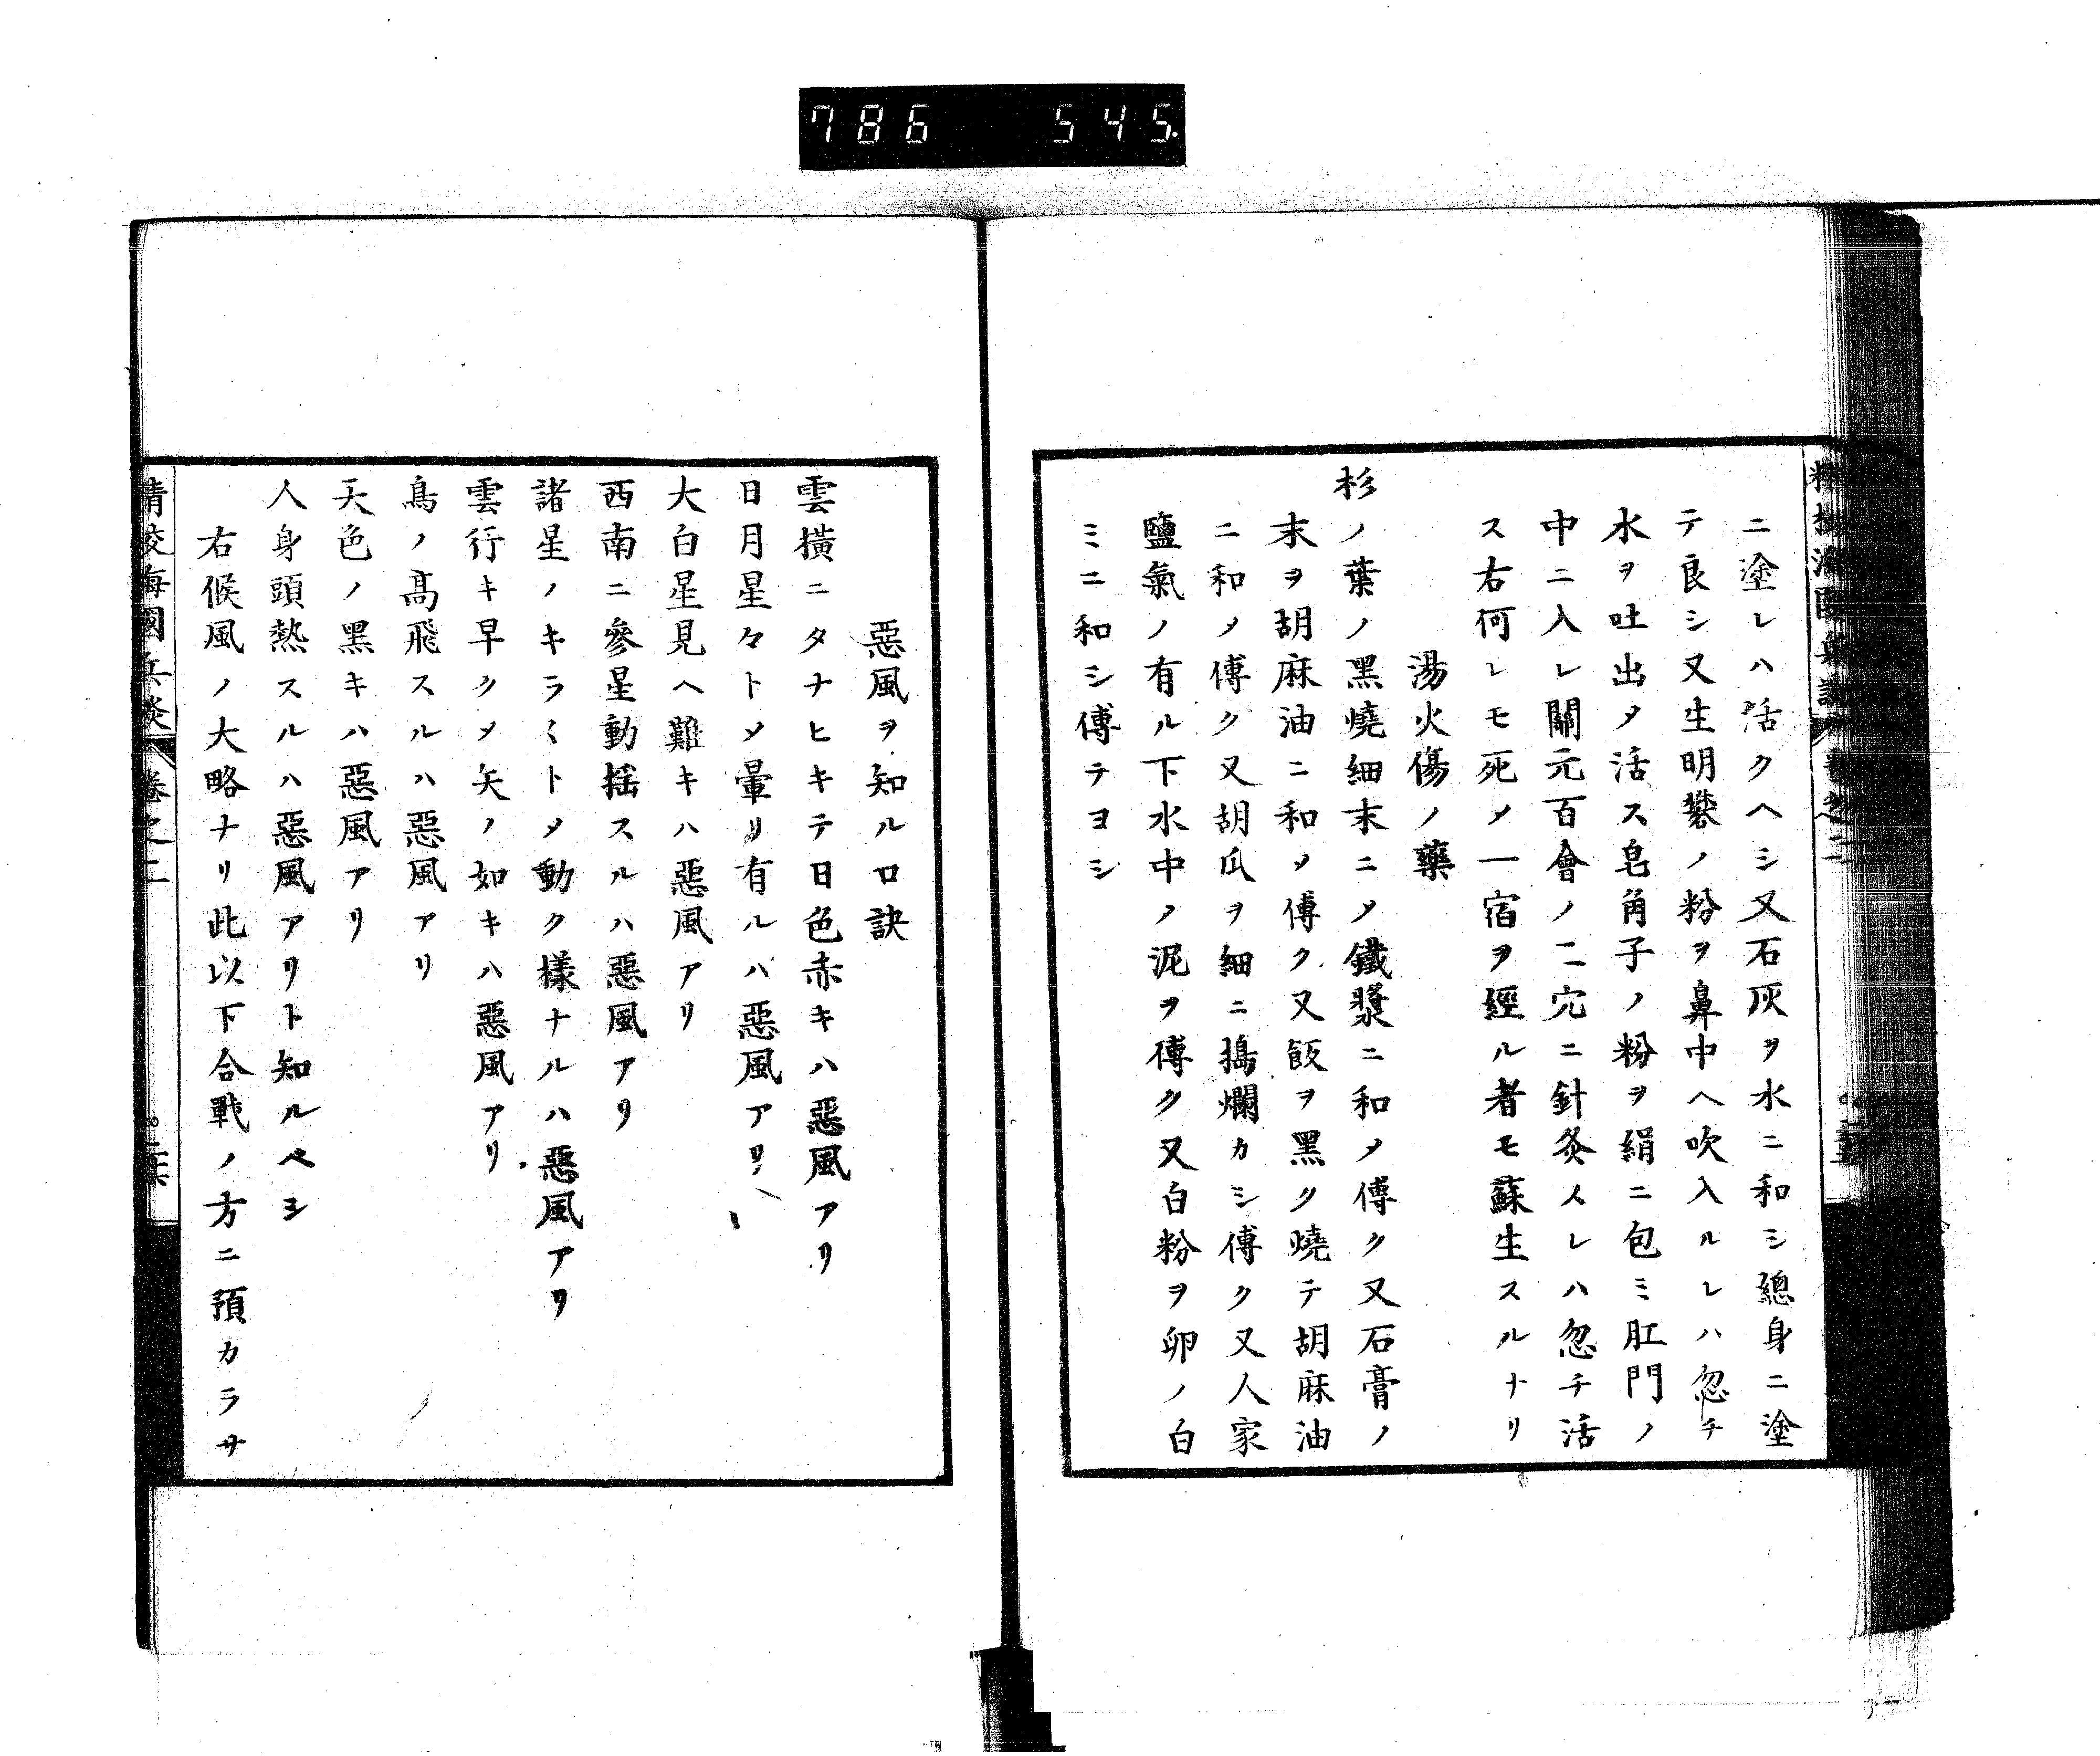 786 545
ニ塗レハ活クヘシ又石灰ヲ水ニ和シ總身ニ塗
テ良シ又生明礬ノ粉ヲ鼻中ヘ吹入ルレハ忽チ
水ヲ吐出メ活ス皂角子ノ粉ヲ絹ニ包ミ肛門ノ
中ニ入レ關元百會ノ二穴ニ針灸スレハ忽チ活
ス右何レモ死メ一宿ヲ經ル者モ蘇生スルナリ
湯火傷ノ藥
杉ノ葉ノ黑燒細末ニメ鐵漿ニ和メ傅ク又石膏ノ
末ヲ胡麻油ニ和メ傅ク又飯ヲ黑ク燒テ胡麻油
ニ和メ傅ク又胡瓜ヲ細ニ搗爛カシ傅ク又人家
鹽氣ノ有ル下水中ノ泥ヲ傅ク又白粉ヲ卵ノ白
ミニ和シ傅テヨシ
惡風ヲ知ル口訣
雲橫ニタナヒキテ日色赤キハ惡風アリ
日月星々トメ暈リ有ルハ惡風アリ
大白星見ヘ難キハ惡風アリ
西南ニ參星動搖スルハ惡風アリ
諸星ノキラ〱トメ動ク樣ナルハ惡風アリ
雲行キ早クメ矢ノ如キハ惡風アリ
鳥ノ髙飛スルハ惡風アリ
天色ノ黑キハ惡風アリ
人身頭熱スルハ惡風アリト知ルベシ
右候風ノ大略ナリ此以下合戰ノ方ニ預カラサ
精校海國兵談 卷之二